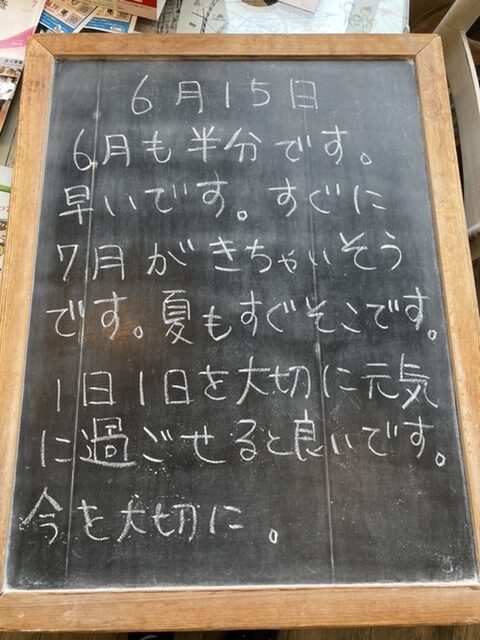 6月15日
6月も半分です。
早いです。すぐに
7月がきちゃいそう
です。夏もすぐそこです。
1日1日を大切に元気
に過ごせると良いです。
今を大切に。